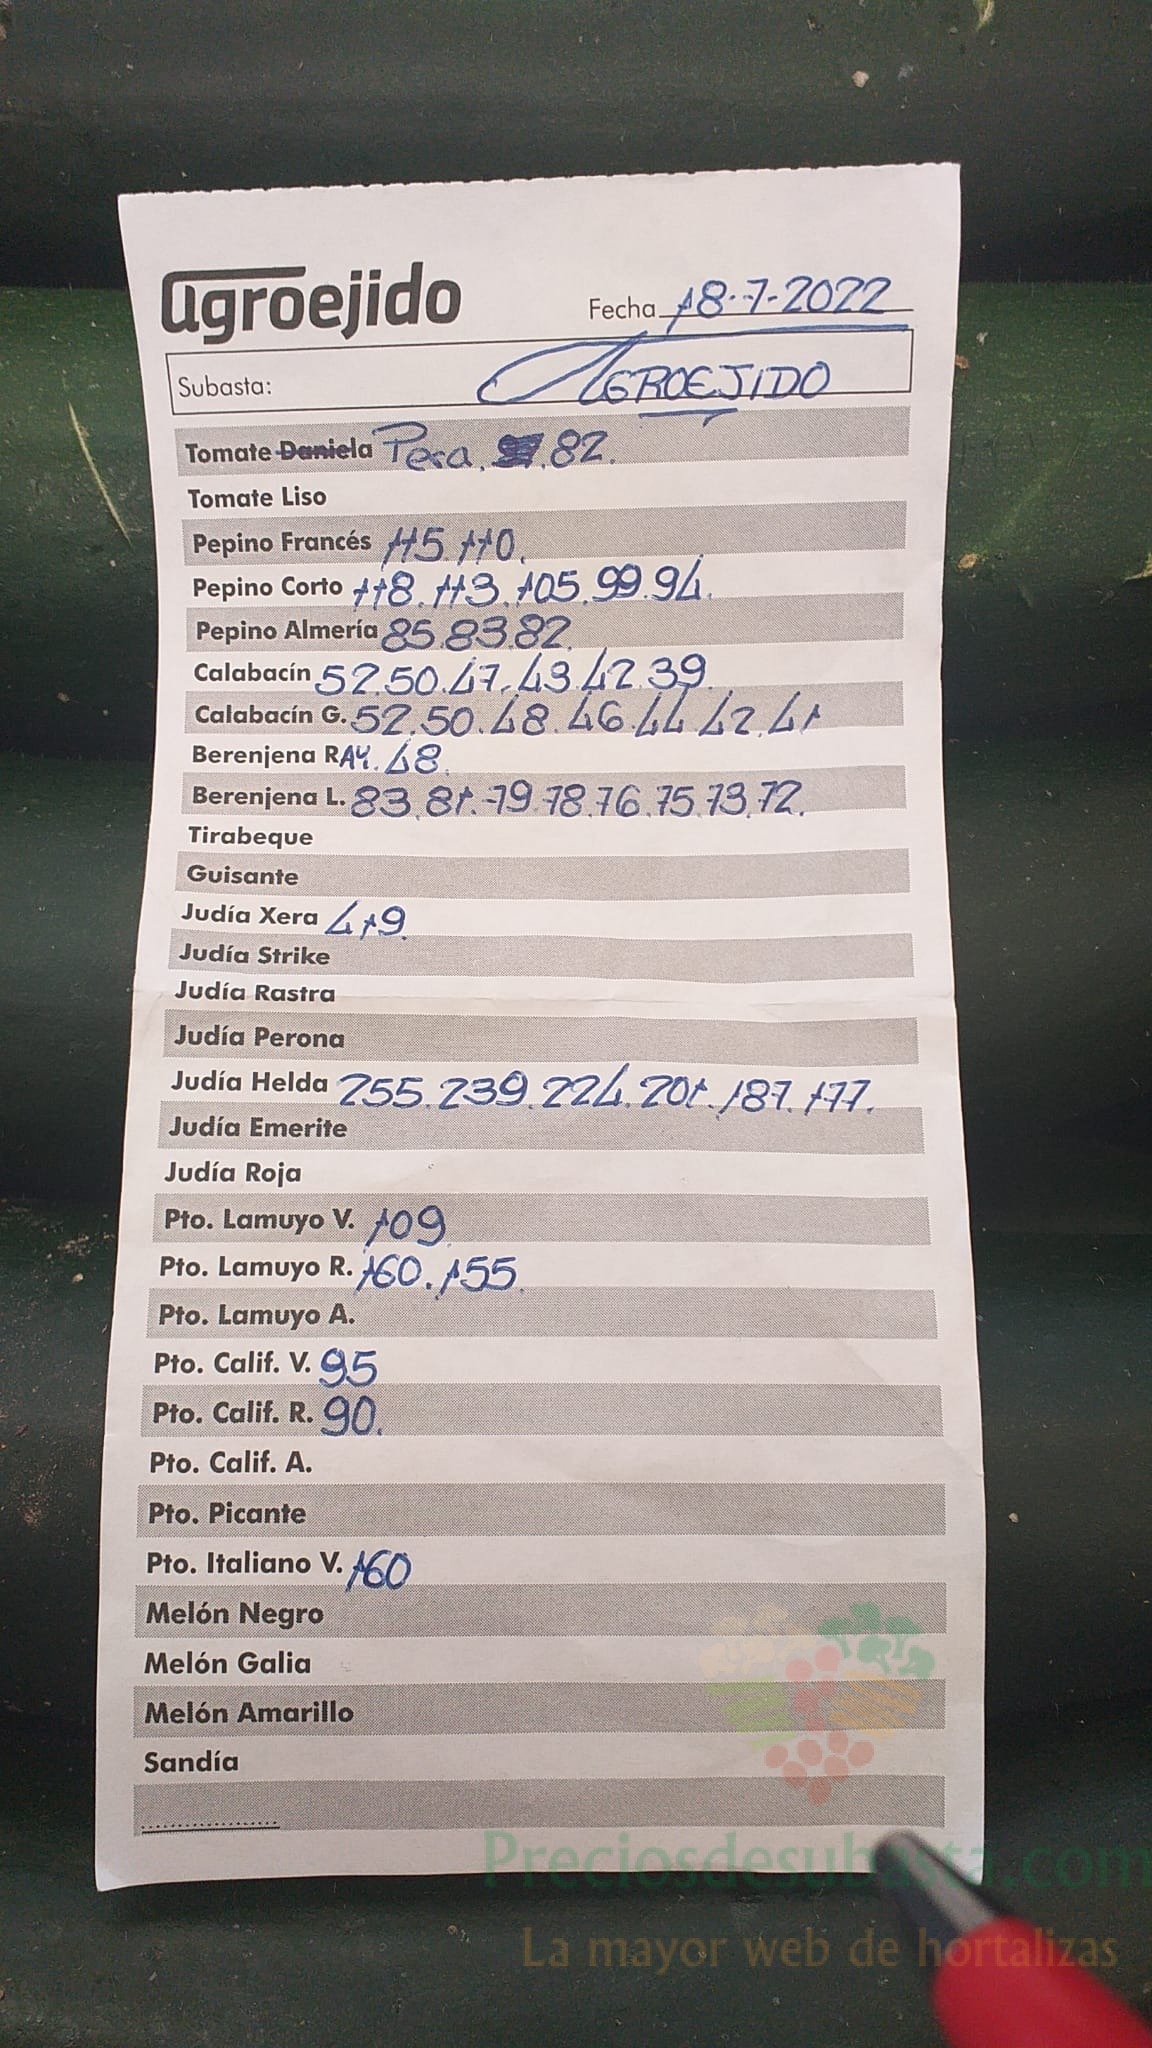 agroejido
Fecha 18-7-2022
Subasta: AGROEJIDO
Tomate Daniela Pera. 82.
Tomate Liso
Pepino Francés 115.110.
Pepino Corto 118.113.105.99.94.
Pepino Almería 85.83.82.
Calabacín 52.50.47.43.42.39.
Calabacín G. 52.50.48.46.44.42.41
Berenjena RAY.48.
Berenjena L. 83.81.79.78.76.75.73.72.
Tirabeque
Guisante
Judía Xera 419.
Judía Strike
Judía Rastra
Judía Perona
Judía Helda 255.239.224.201.187.177.
Judía Emerite
Judía Roja
Pto. Lamuyo V. 109.
Pto. Lamuyo R. 160.155.
Pto. Lamuyo A.
Pto. Calif. V. 95
Pto. Calif. R. 90.
Pto. Calif. A.
Pto. Picante
Pto. Italiano V. 160
Melón Negro
Melón Galia
Melón Amarillo
Sandía
Preciosdesubasta.com
La mayor web de hortalizas